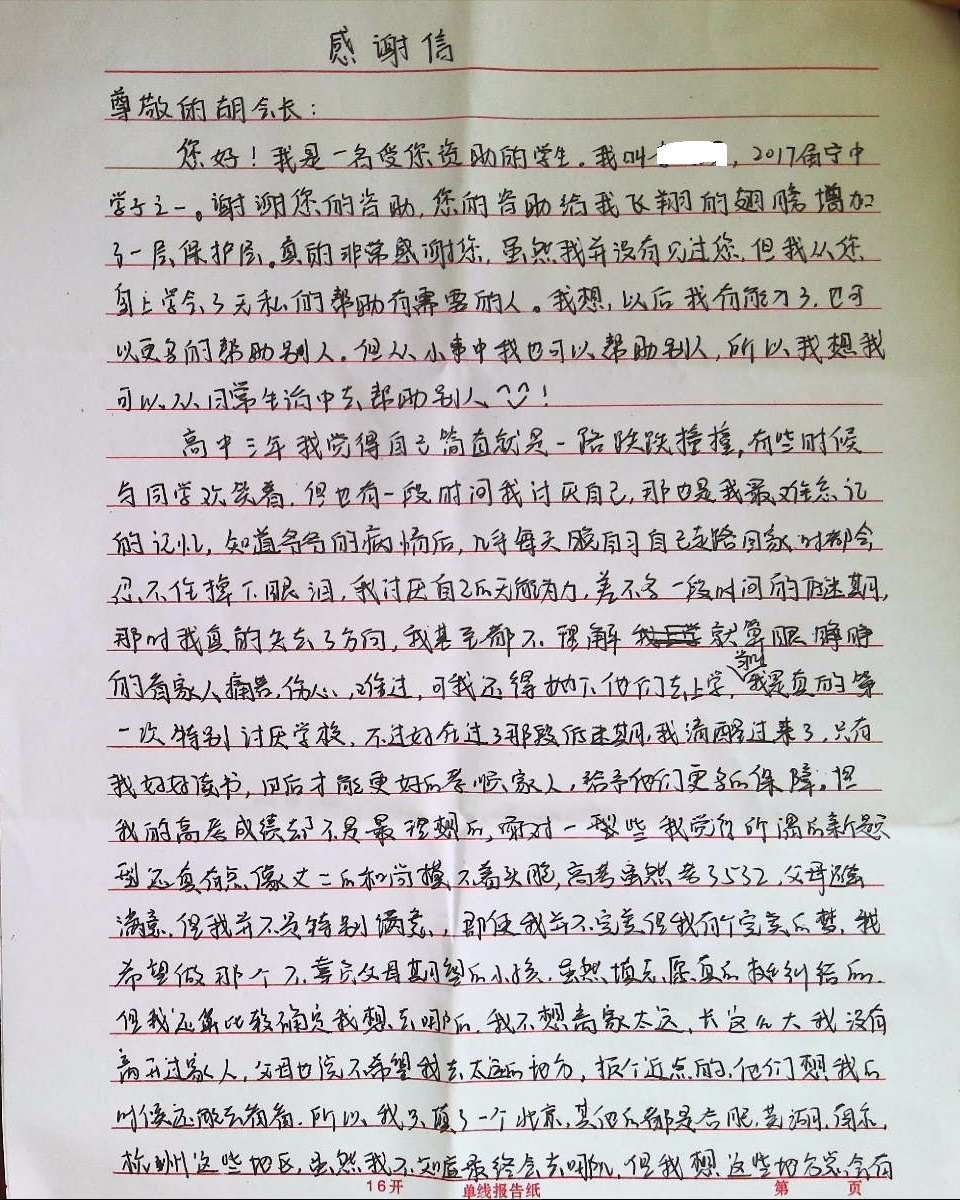 感谢信
尊敬的胡会长：
您好！我是一名受您资助的学生。我叫，2017届宁中
学子之一。谢谢您的资助，您的资助给我飞翔的翅膀增加
了一层保护层。真的非常感谢您，虽然我并没有见过您，但我从您
身上学会了无私的帮助有需要的人。我想，以后我有能力了，也可
以更多的帮助别人。但从小事中我也可以帮助别人，所以我想我
可以从日常生活中去帮助别人！
高中三年我觉得自己简直就是一路跌跌撞撞，有些时候
与同学欢笑着，但也有一段时间我讨厌自己，那也是我最难忘记
的记忆，知道爷爷的病情后，几乎每天晚自习自己走路回家时都会
忍不住掉下眼泪，我讨厌自己的无能为力，差不多一段时间的低迷期，
那时我真的失去了方向，我甚至都不理解就算眼睁睁
的看家人痛苦，伤心，难过，可我还得抛下他们去上学，我是真的第
一次特别讨厌学校，不过好在过了那段低迷期，我清醒过来了，只有
我好好读书，日后才能更好的孝顺家人，给予他们更多的保障。但
我的高考成绩却不是最理想的，面对一些我觉得所谓的新题
型还真有点像丈二的和尚摸不着头脑，高考虽然考了532，父母还蛮
满意，但我并不是特别满意，即使我并不完美但我有个完美的梦，我
希望做那个不辜负父母期望的小孩，虽然填志愿真的挺纠结的，
但我还算比较确定我想去哪的，我不想离家太远，长这么大我没有
离开过家人，父母也说不希望我去太远的地方，报个近点的，他们想我的
时候还能去看看，所以，我只填了一个北京，其他的都是合肥，芜湖，南京，
杭州这些地区，虽然我不知道最终会去哪儿，但我想这些地方总会有
16开 单线报告纸 第 页